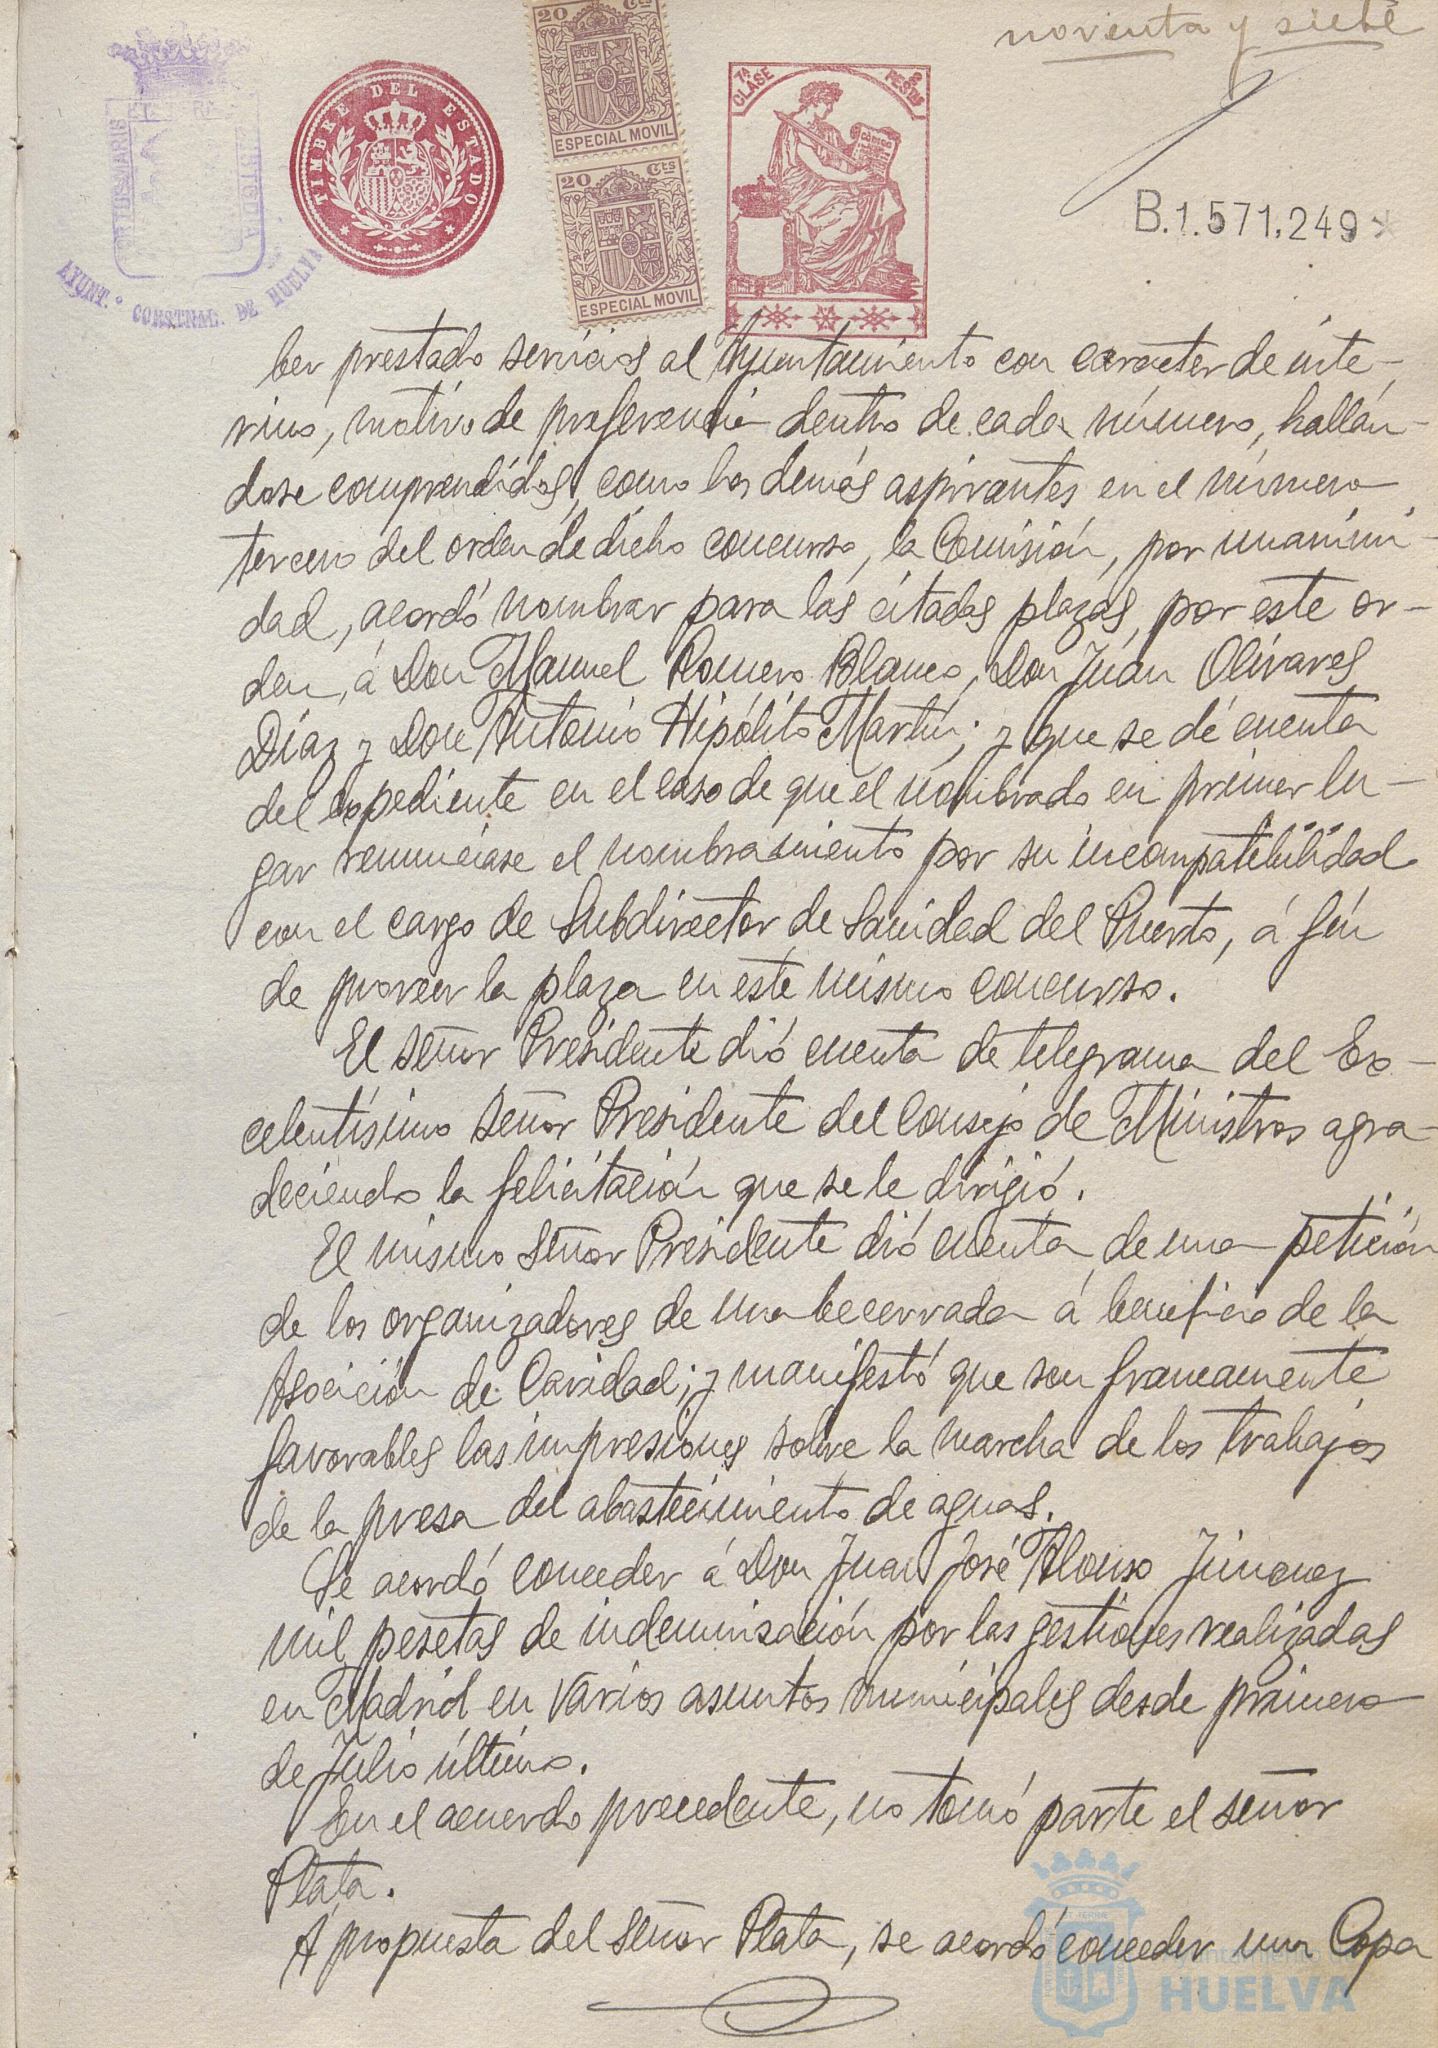 noventa y siete
PORTUS MARIS
CUSTODIA
AYUNT. CONSTNAL. DE HUELVA
TIMBRE DEL ESTADO
20 Cts
ESPECIAL MOVIL
20 Cts
ESPECIAL MOVIL
7ª CLASE
2 PESTAS
B.1.571,249
ber prestado servicios al Ayuntamiento con caracter de inte-
rino, motivo de preferencia dentro de cada número, hallán-
dose comprendidos, como los demás aspirantes en el número
tercero del orden de dicho concurso, la Comisión, por unanimi-
dad, acordó nombrar para las citadas plazas, por este or-
den, á Don Manuel Romero Blanco, Don Juan Olivares
Díaz y Don Antonio Hipólito Martín; y que se dé cuenta
del expediente en el caso de que el nombrado en primer lu-
gar renunciase el nombramiento por su incompatibilidad
con el cargo de Subdirector de Sanidad del Puerto, á fín
de proveer la plaza en este mismo concurso.
El señor Presidente dió cuenta de telegrama del Ex-
celentísimo señor Presidente del Consejo de Ministros agra-
deciendo la felicitación que se le dirigió.
El mismo Señor Presidente dió cuenta de una petición
de los organizadores de una becerrada á beneficio de la
Asocición de Caridad; y manifestó que son francamente
favorables las impresiones sobre la marcha de los trabajos
de la presa del abastecimiento de aguas.
Se acordó conceder á Don Juan José Alonso Jimenez
mil pesetas de indemnisación por las gestiones realizadas
en Madrid en varios asuntos municipales desde primero
de Julio último.
En el acuerdo precedente, no tomó parte el señor
Plata.
A propuesta del Señor Plata, se acordó conceder una Copa
Ayuntamiento de
HUELVA